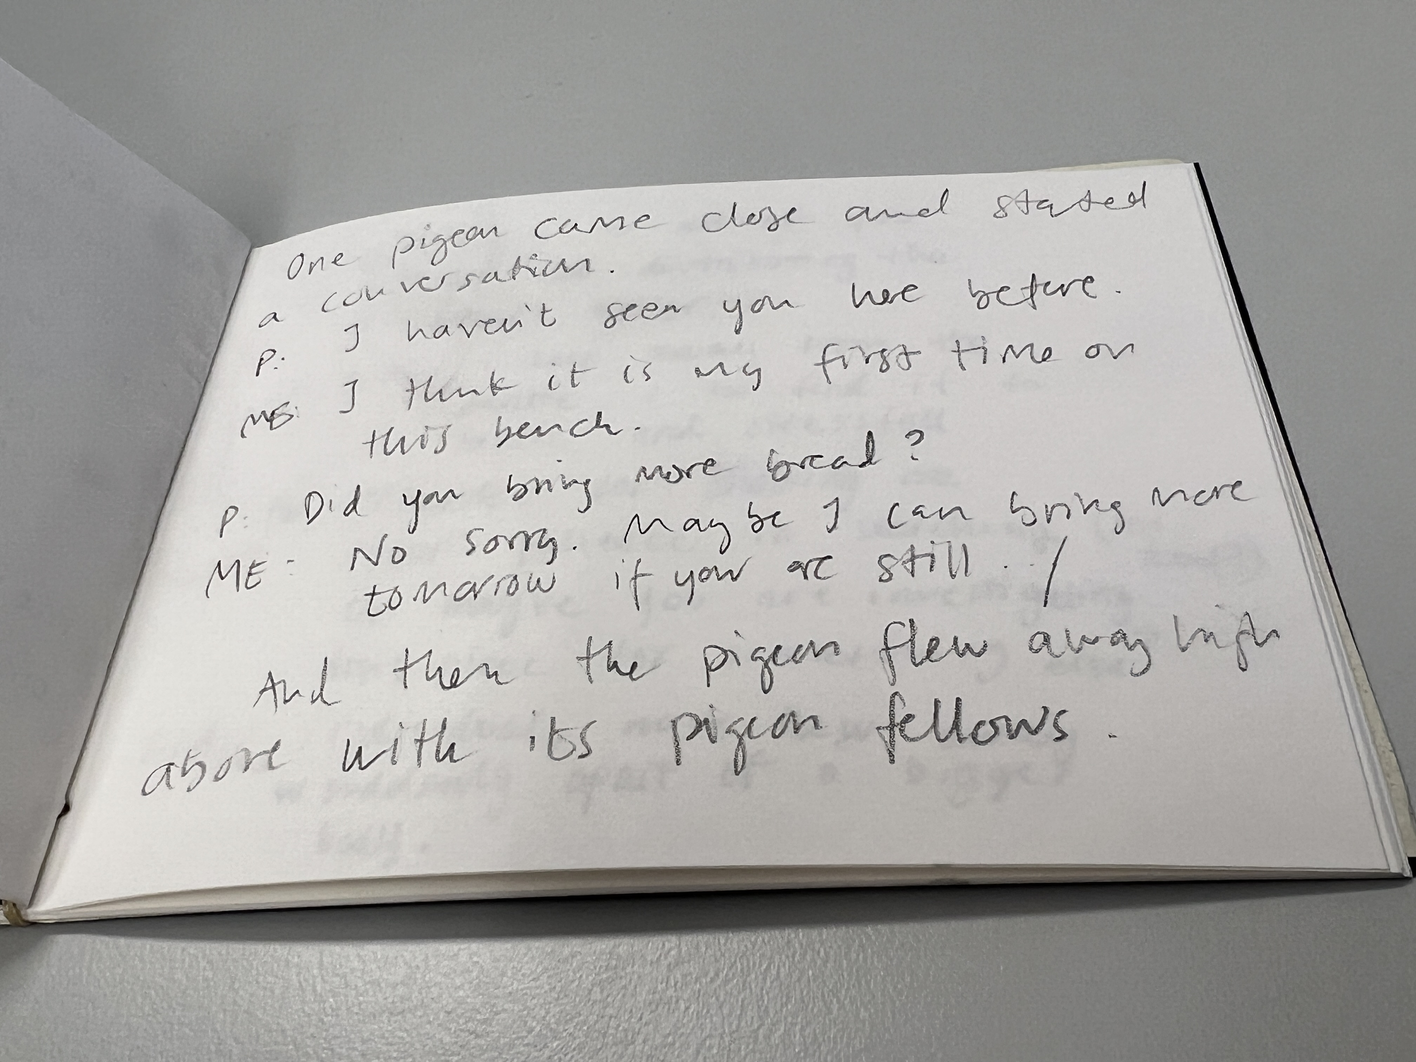 One pigeon came close and started
a conversation.
P: I haven't seen you here before.
ME: I think it is my first time on
this bench.
P: Did you bring more bread?
ME: No sorry. Maybe I can bring more
tomorrow if your are still . . /
And then the pigeon flew away high
above with its pigeon fellows.